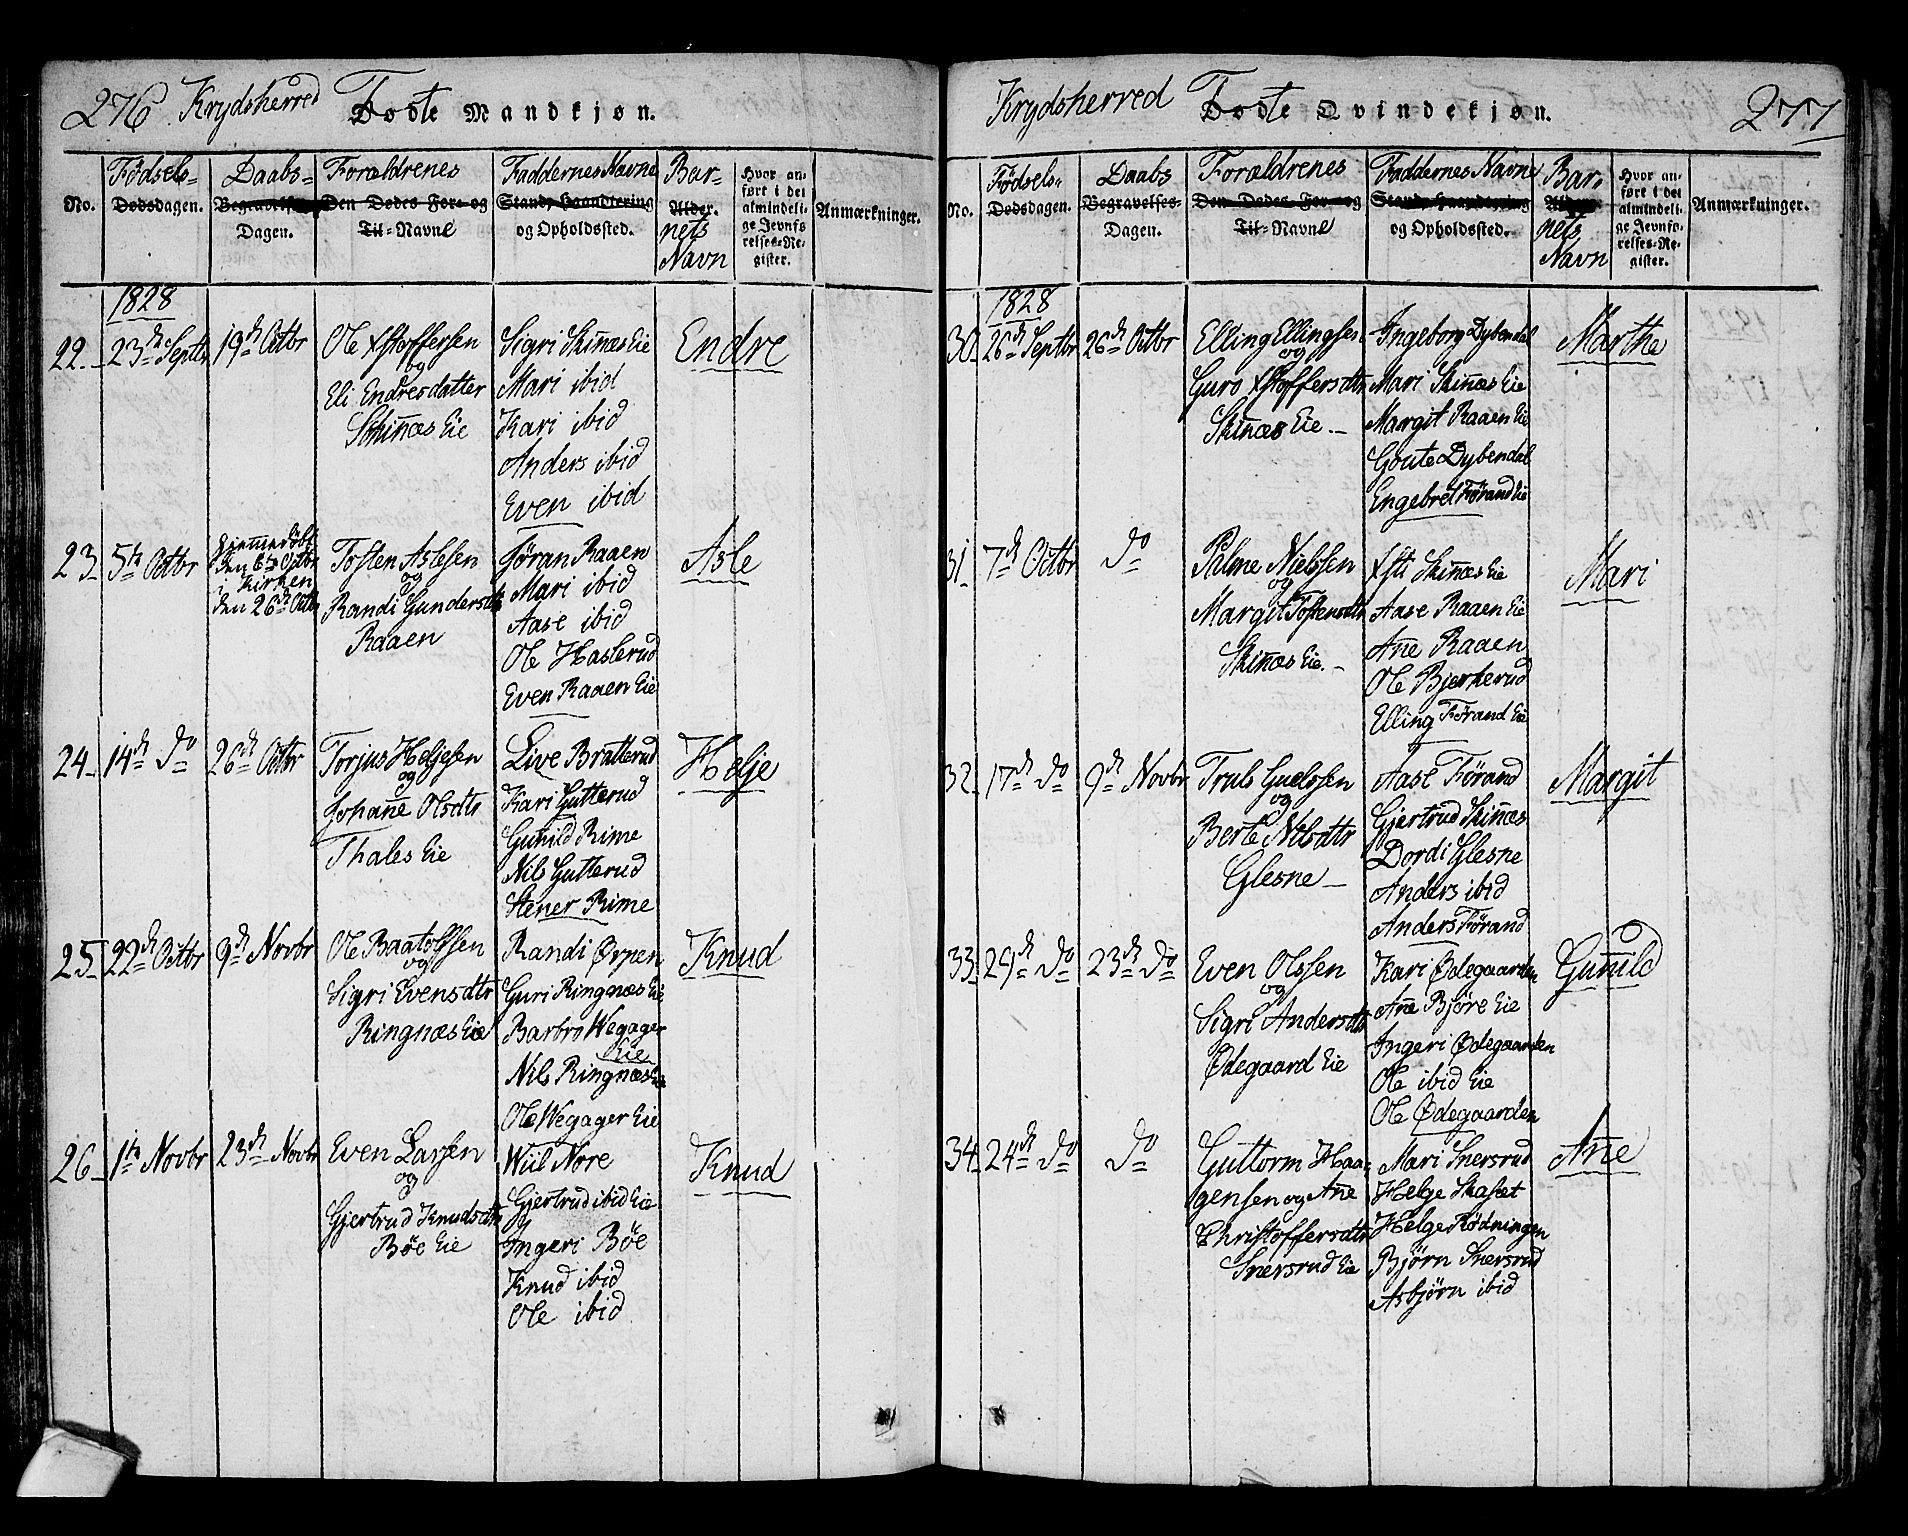 276 Krydsherred Fødte Mandkjøn.
No.
Fødsels-
Dødsdagen.
Daabs-
Begravelses
Dagen.
Forældrenes
Den Dødes For- og
Til-Navne
Faddernes Navne
Stand, Haandtering
og Opholdssted.
Bar-
Alder.
nets
Navn
Hvor an-
ført i det
almindeli-
ge Jevnfø-
relses-Re-
gister.
Anmærkninger.
1828
22. 23de Septbr 19de Octbr
Ole Xstoffersen
og
Eli Endresdatter
Skinnæs Eie
Sigri Skinnæs Eie
Mari ibid
Kari ibid
Anders ibid
Even ibid
Endre
23 5te Octbr
Hiemmedøbt
den 6te Octbr
i Kirken
den 26de Octbr
Tosten Aslesen
og
Randi Gundersdtr
Raaen
Jøran Raaen
Mari ibid
Aase ibid
Ole Haslerud
Even Raaen Eie
Asle
24 14de do 26de Octbr
Torjus Heljesen
og
Johanne Olsdtr
Thales Eie
Live Bratterud
Kari Gutterud
Gunild Rime
Nils Gutterud
Stener Rime
Helje
25 22de Octbr 9de Novbr
Ole Baatolfsen
og
Sigri Evensdtr
Ringnæs Eie
Randi Ørpen
Guri Ringnæs Eie
Barbro Wegager
Eie
Nils Ringnæs Eie
Ole Wegager Eie
Knud
26 1te Novbr 23de Novbr
Even Larsen
og
Gjertrud Knudsdtr
Bøe Eie
Wiil Nore
Gjertrud ibid Eie
Ingeri Bøe
Knud ibid
Ole ibid
Knud
Krydsherred Fødte Qvindekjøn. 277
No.
Fødsels-
Dødsdagen.
Daabs
Begravelses-
Dagen.
Forældrenes
Den Dødes For- og
Til-Navne
Faddernes Navne
Stand, Haandtering
og Opholdssted.
Bar-
nets
Navn
Hvor an-
ført i det
almindeli-
ge Jevnfø-
relses-Re-
gister.
Anmærkninger.
1828
30 26de Septbr 26de Octbr
Elling Ellingsen
og
Guro Xstoffersdtr
Skinnæs Eie
Ingeborg Dybendal
Mari Skinnæs Eie
Margit Raaen Eie
Goute Dybendal
EngebretFørand Eie
Marthe
31 7de Octbr do
Palme Nielssen
og
Margit Tostensdtr
Skinnæs Eie
Xsti Skinnæs Eie
Aase Raaen Eie
Ane Raaen
Ole Bjerkerud
Elling Førand Eie
Mari
32 17de do 9de Novbr
Truls Guelssen
og
Berte Nilsdtr
Glesne
Aase Førand
Gjertrud Skinnæs
Dordi Glesne
Anders ibid
Anders Førand
Margit
33 29de do 23de do
Even Olssen
og
Sigri Andersdtr
Ødegaard Eie
Kari Ødegaarden
Ane Bjøre Eie
Ingeri Ødegaarden
Ole ibid Eie
Ole Ødegaarden
Gunnild
34 24de do do
Guttorm Haa-
gensen og Ane
Christoffersdtr
Snersrud Eie
Mari Snersrud
Helge Skaset
Helge Rødningen
Bjørn Snersrud
Asbjørn ibid
Ane